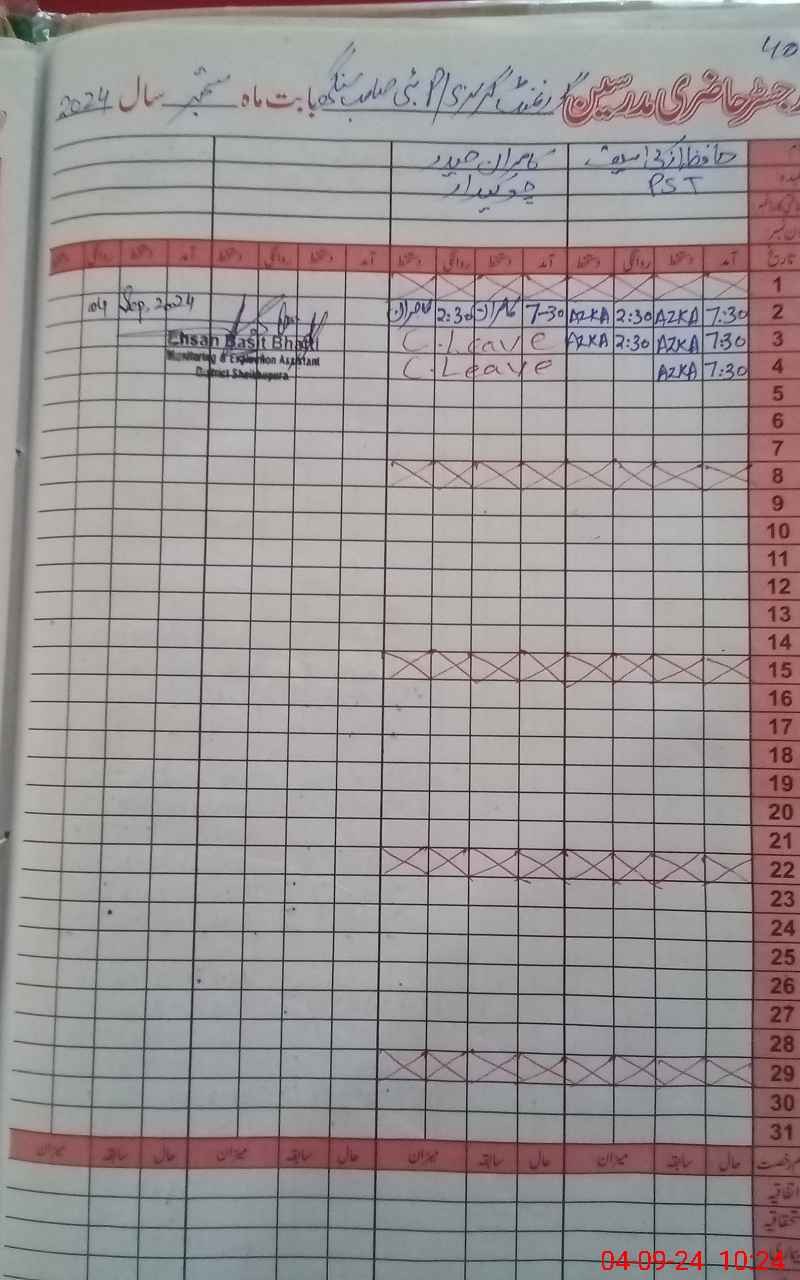 40
رجسٹر حاضری مدرسین گورنمنٹ گرلز P/ بابت ماہ ستمبر سال 2024
حافظہ کامران حیدر
PST چوکیدار
تاریخ آمد دستخط روانگی دستخط آمد دستخط روانگی دستخط آمد دستخط روانگی دستخط آمد دستخط روانگی دستخط
1
2 7:30 AZKA 2:30 AZKA 7-30 کامران 2:30 کامران
04 Sep. 2024
3 7:30 AZKA 2:30 AZKA C.Leave
Ehsan Basit Bhatti
Monitoring & Evaluation Assistant
District Sheikhupura
4 7:30 AZKA C.Leave
5
6
7
8
9
10
11
12
13
14
15
16
17
18
19
20
21
22
23
24
25
26
27
28
29
30
31
رخصت حال سابقہ میزان حال سابقہ میزان حال سابقہ میزان حال سابقہ میزان
اتفاقیہ
استحقاقیہ
بیماری
04-09-24 10:24